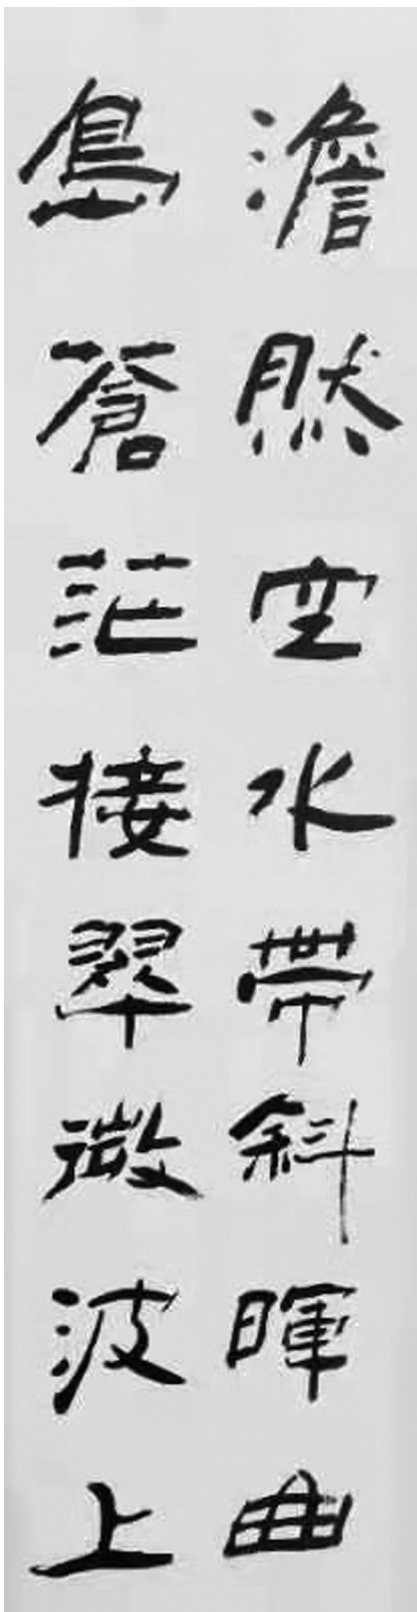 澹然空水帶斜暉曲
島蒼茫接翠微波上